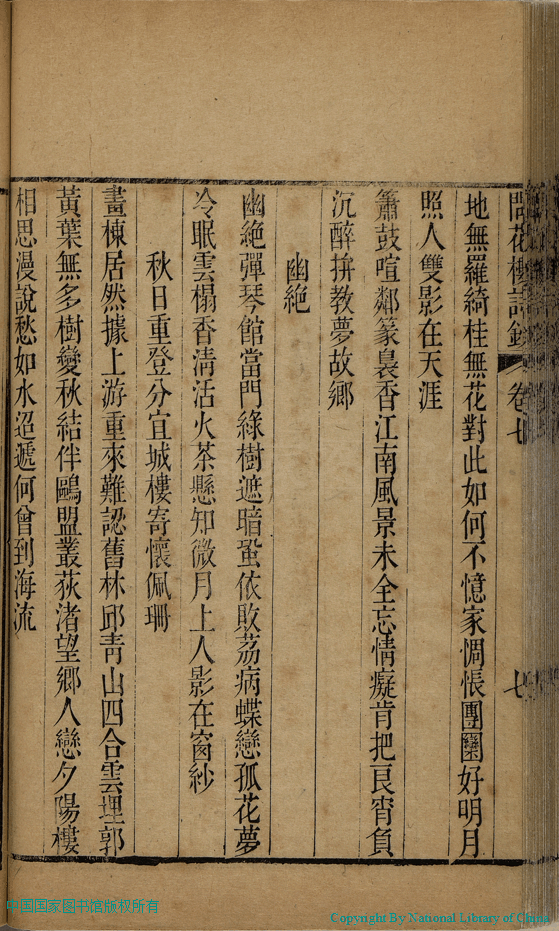 問花樓詩鈔 卷七 七
地無羅綺桂無花對此如何不憶家惆悵團圞好明月
照人雙影在天涯
簫鼓喧鄰篆裊香江南風景未全忘情癡肯把良宵負
沉醉拚教夢故鄉
幽絶
幽絶彈琴館當門綠樹遮暗蛩依敗荔病蝶戀孤花夢
冷眠雲榻香清活火茶懸知微月上人影在窗紗
秋日重登分宜城樓寄懷佩珊
畫棟居然據上游重來難認舊林邱青山四合雲埋郭
黃葉無多樹變秋結伴鷗盟叢荻渚望鄉人戀夕陽樓
相思漫說愁如水迢遞何曾到海流
中国国家图书馆版权所有
Copyright By National Library of China